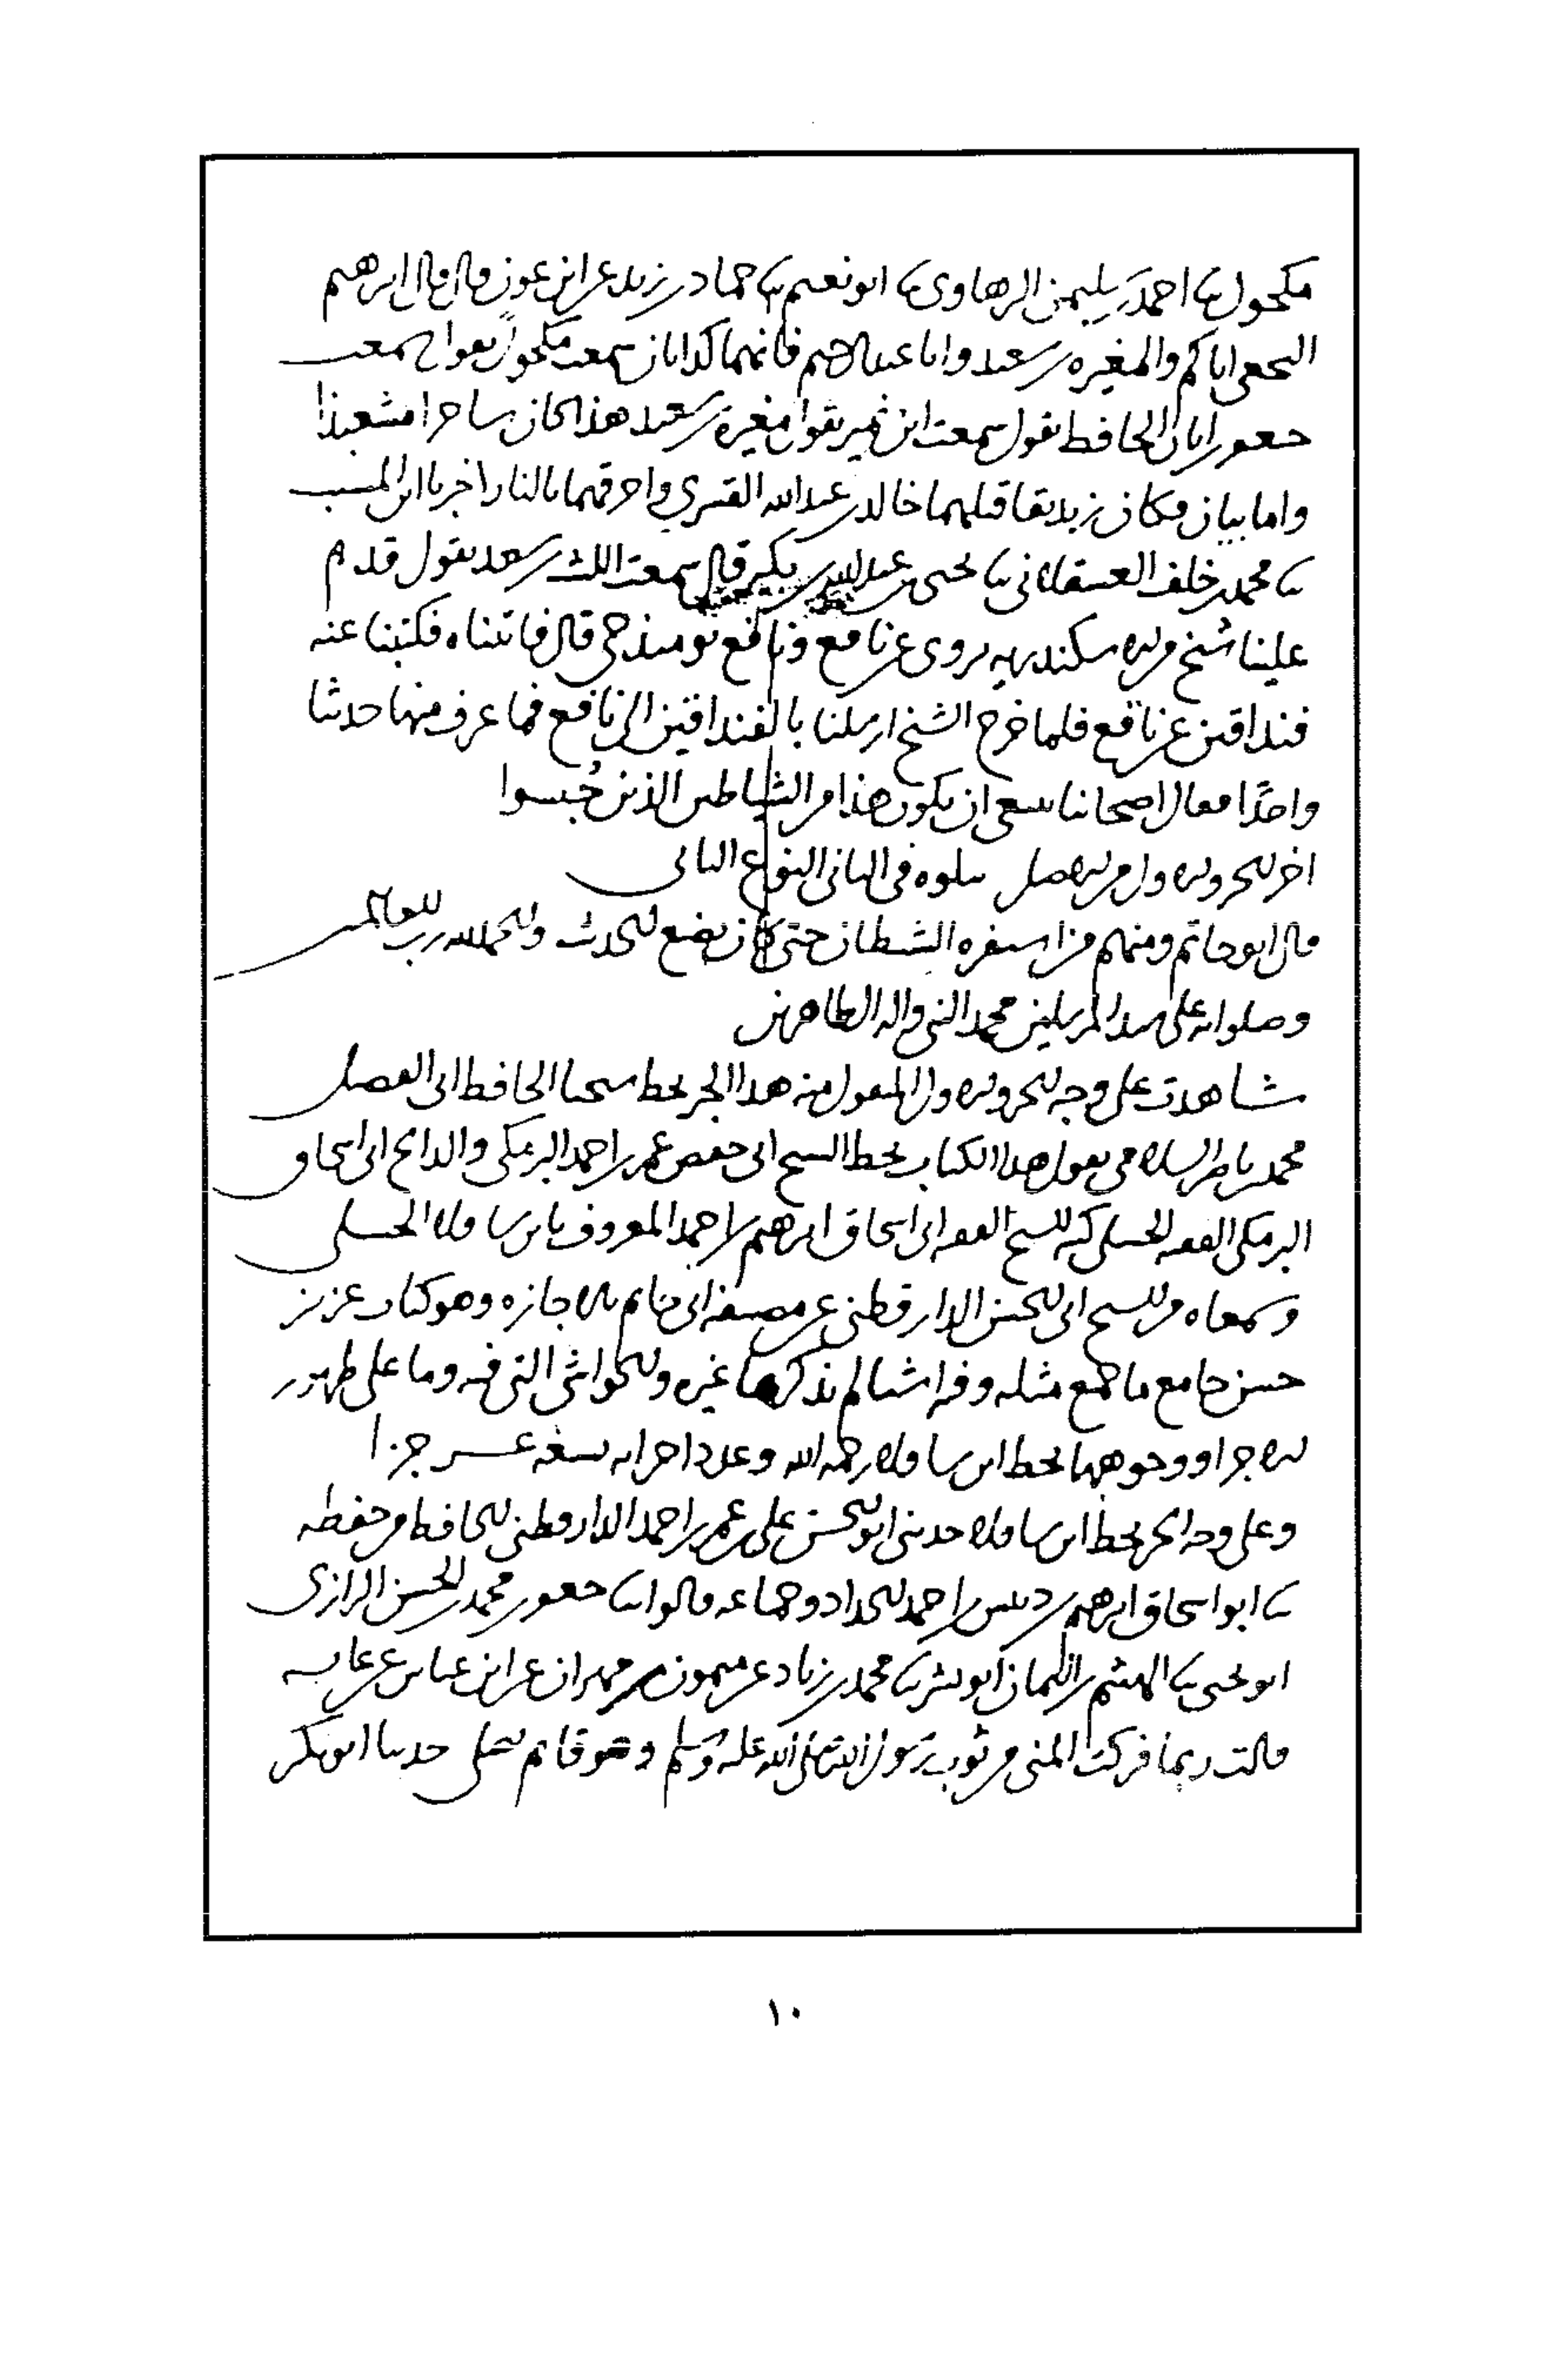 مكحول ثنا احمد بن سليمن الرهاوى ثنا ابو نعيم ثنا حماد بن زيد عن ابن عون قال قال ابرهيم
النخعى اياكم والمغيره بن سعيد وابا عبد الرحيم فانهما كذابان سمعت مكحول يقول سمعت
جعفر بن ابان الحافظ يقول سمعت ابن نمير يقول مغيرة بن سعيد هذا كان ساحرا مشعبذا
واما بيان فكان زنديقا قتلهما خالد بن عبد الله القسري واحرقهما بالنار اخبرنا ابن المسيب
ثنا محمد بن خلف العسقلانى ثنا يحيى بن عبد الله بن بكير قال سمعت الليث بن سعد يقول قدم
علينا شيخ من الاسكندريه يروى عن نافع ونافع يومئذ حى قال فاتيناه فكتبنا عنه
فنداقين عن نافع فلما خرج الشيخ ارسلنا بالفنداقين الى نافع فما عرف منها حديثا
واحدًا فقال اصحابنا ينبغى ان يكون هذا من الشياطين الذين حُبسوا
اخر الجزو الاول من الاصل يتلوه فى الثانى النوع الثانى
قال ابو حاتم ومنهم من استفزه الشيطان حتى كان يضع الحديث والحمد لله رب العالمين
وصلواته على سيد المرسلين محمد النبى واله الطاهرين
شاهدت على وجه الجزو الاول المنقول منه هذا الجزو بخط شيخنا الحافظ ابى الفضل
محمد بن ناصر السلامى يقول هذا الكتاب بخط الشيخ ابى حفص عمر بن احمد البرمكى والد الشيخ ابى اسحاق
البرمكى الفقيه الحنبلى كتبه للشيخ الفقيه ابى اسحاق ابرهيم بن احمد المعروف بابن شاقلا الحنبلى
وسمعاه من الشيخ ابى الحسن الدارقطنى عن مصنفه ابى حاتم بالاجازه وهو كتاب عزيز
حسن جامع ما جمع مثله وفيه اشيا لم يذكرها غيره والحواشى التى فيه وما على ظهور
الاجزاء ووجوهها بخط ابن شاقلا رحمه الله وعدد اجزائه تسعة عشر جزءا
وعلى وجه الجزو بخط ابن شاقلا حدثنى ابو الحسن على بن عمر بن احمد الدارقطنى الحافظ من حفظه
ثنا ابو اسحاق ابرهيم بن دبيس بن احمد الحداد وجماعه قالوا ثنا جعفر بن محمد بن الحسن الرازى
ابو يحيى ثنا الهيثم بن اليمان ابو بشر ثنا محمد بن زياد عن ميمون بن مهران عن ابن عباس عن عايشه
قالت ربما فركت المنى من ثوب رسول الله صلى الله عليه وسلم وهو قايم يصلى حدثنا ابو بكر
١٠